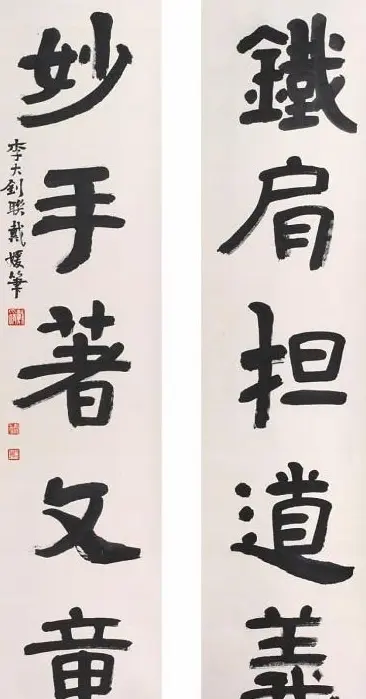 鐵肩担道義
妙手著文章
李大釗联戴媛筆